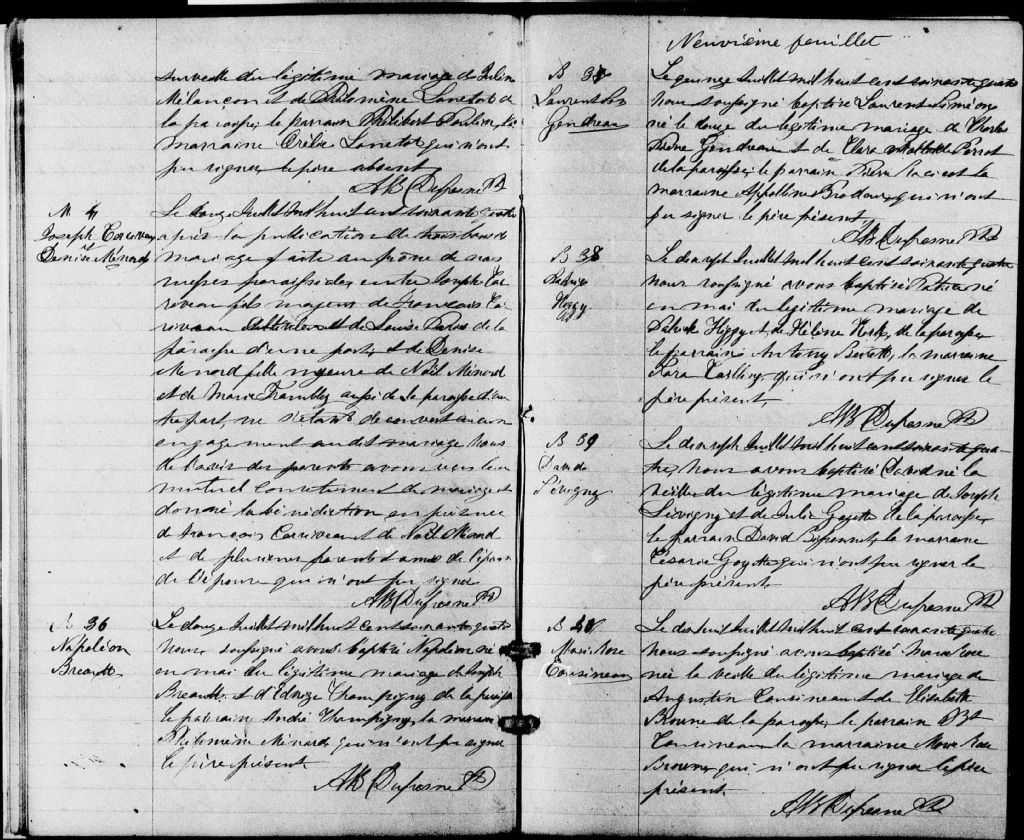 sur veille du légitime mariage de Julien
Mélançon et de Philomène Lanctot de
la paroisse, le parrain Philibert Poulin, la
marraine Orélie Lanctot qui n'ont
pu signer le père absent
AB Dufresne Ptre
M
Joseph Corriveau
et
Denise Ménard
Le douze Juillet mil huit cent soixante quatre
après la publication de trois bans de
mariage faite au prône de nos
messes paroissiales entre Joseph Cor
riveau fils majeur de François Cor
riveau et de Louise de la
paroisse d'une part, et de Denise
Ménard fille mineure de Noël Ménard
et de Marie Tremblay aussi de la paroisse d'au
tre part, ne s'étant découvert aucun
engagement au dit mariage Nous
de l'avis des parents avons reçu leur
mutuel consentement de mariage et
donné la bénédiction en présence
de François Corriveau et de Noël Ménard
et de plusieurs parents et amis de l'époux
de l'épouse qui n'ont pu signer
AB Dufresne Ptre
B 36
Napoléon
Breault
Le douze Juillet mil huit cent soixante quatre
Nous soussigné avons baptisé Napoléon né
en mai du légitime mariage de Joseph
Breault et d'Edwige Champigny de la paroisse
le parrain André Champigny, la marraine
Philomène Ménard, qui n'ont pu signer
le père présent
AB Dufresne Ptre
Neuvième feuillet
B 37
Laurent
Gendreau
Le quinze Juillet mil huit cent soixante quatre
Nous soussigné baptisé Laurent Siméon
né le douze du légitime mariage de Charles
Gendreau et de Clara Perrot
de la paroisse, le parrain Pierre et la
marraine Appolline Brodeur, qui n'ont
pu signer le père présent
AB Dufresne Ptre
B 38
Patrice
Higgy
Le dix sept Juillet mil huit cent soixante quatre
nous soussigné avons baptisé Patrice né
en mai du légitime mariage de
Patrick Higgy et de Hélène de la paroisse,
le parrain Antony, la marraine
Sara, qui n'ont pu signer le
père présent,
AB Dufresne Ptre
B 39
David
Sévigny
Le dix sept Juillet mil huit cent soixante qua
tre, Nous avons baptisé David né la
veille du légitime mariage de Joseph
Sévigny et de Julie Goyette de la paroisse,
le parrain David, la marraine
Césarie Goyette qui n'ont pu signer le
père présent
AB Dufresne Ptre
B 40
Marie Rose
Cousineau
Le dix huit Juillet mil huit cent soixante quatre
Nous soussigné avons baptisé Marie Rose
née la veille du légitime mariage de
Augustin Cousineau et de Elisabeth
Browne de la paroisse, le parrain Bte
Cousineau la marraine Marie Rose
Browne, qui n'ont pu signer le père
présent
AB Dufresne Ptre